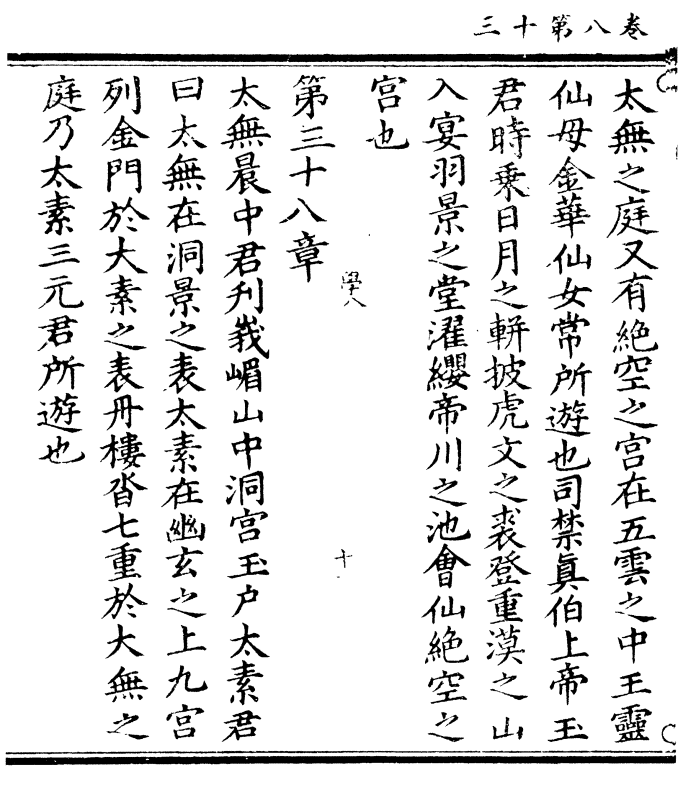 卷八第十三
太無之庭又有絶空之宫在五雲之中王靈
仙母金華仙女常所遊也司禁真伯上帝玉
君時乗日月之軿披虎文之裘登重漠之山
入宴羽景之堂濯纓帝川之池㑹仙絶空之
宫也
第三十八章
學八
十
太無晨中君刋峩嵋山中洞宫玉户太素君
曰太無在洞景之表太素在幽玄之上九宫
列金門於大素之表丹樓沓七重於大無之
庭乃太素三元君所遊也